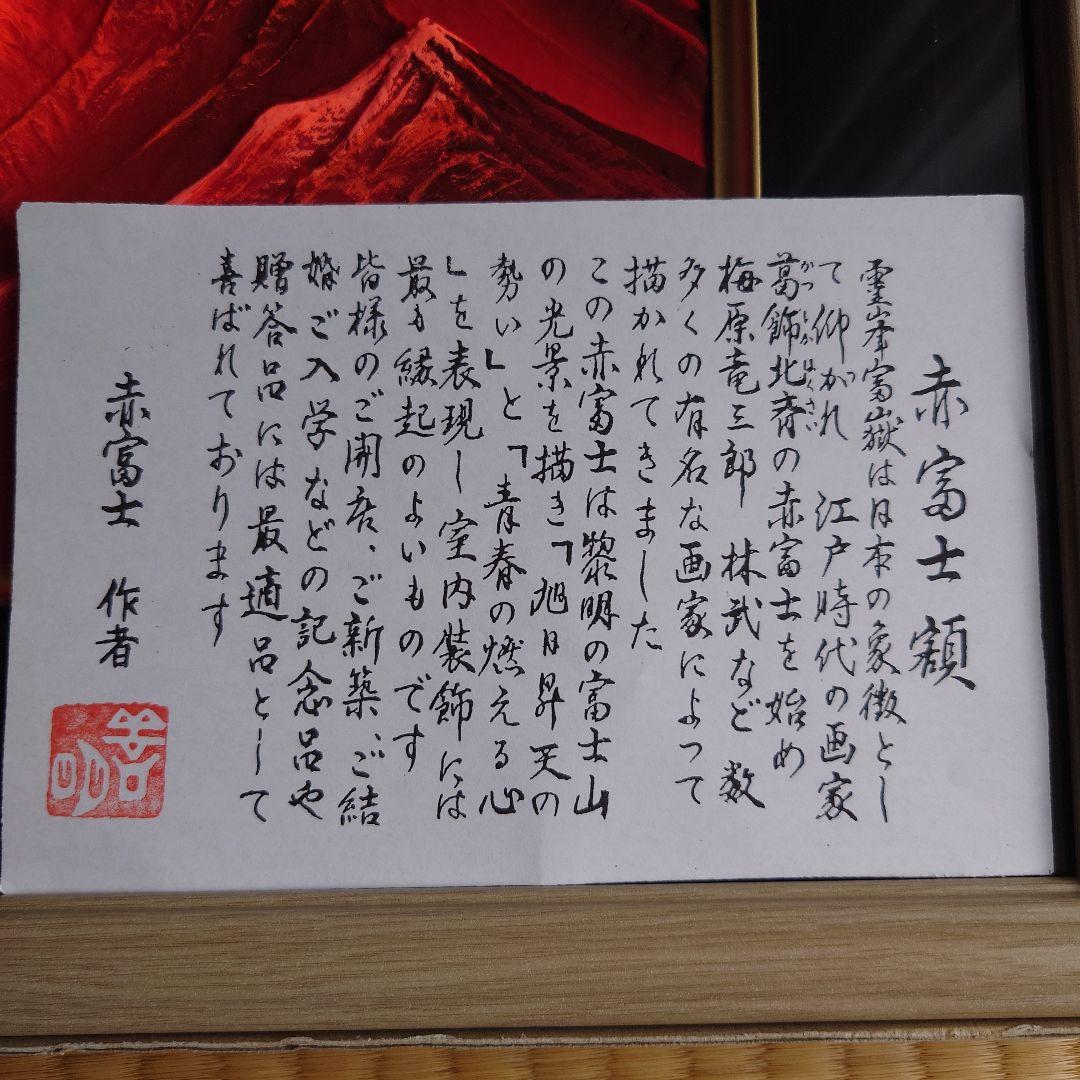 赤富士額
霊峯富嶽は日本の象徴とし
て仰がれ 江戸時代の画家
葛飾北斉の赤富士を始め
かつしかほくさい
梅原竜三郎 林武など 数
多くの有名な画家によって
描かれてきました
この赤富士は黎明の富士山
の光景を描き「旭日昇天の
勢い」と「青春の燃える心
」を表現し室内装飾には
最も縁起のよいものです
皆様のご開店、ご新築、ご結
婚ご入学などの記念品や
贈答品には最適品として
喜ばれております
赤富士 作者